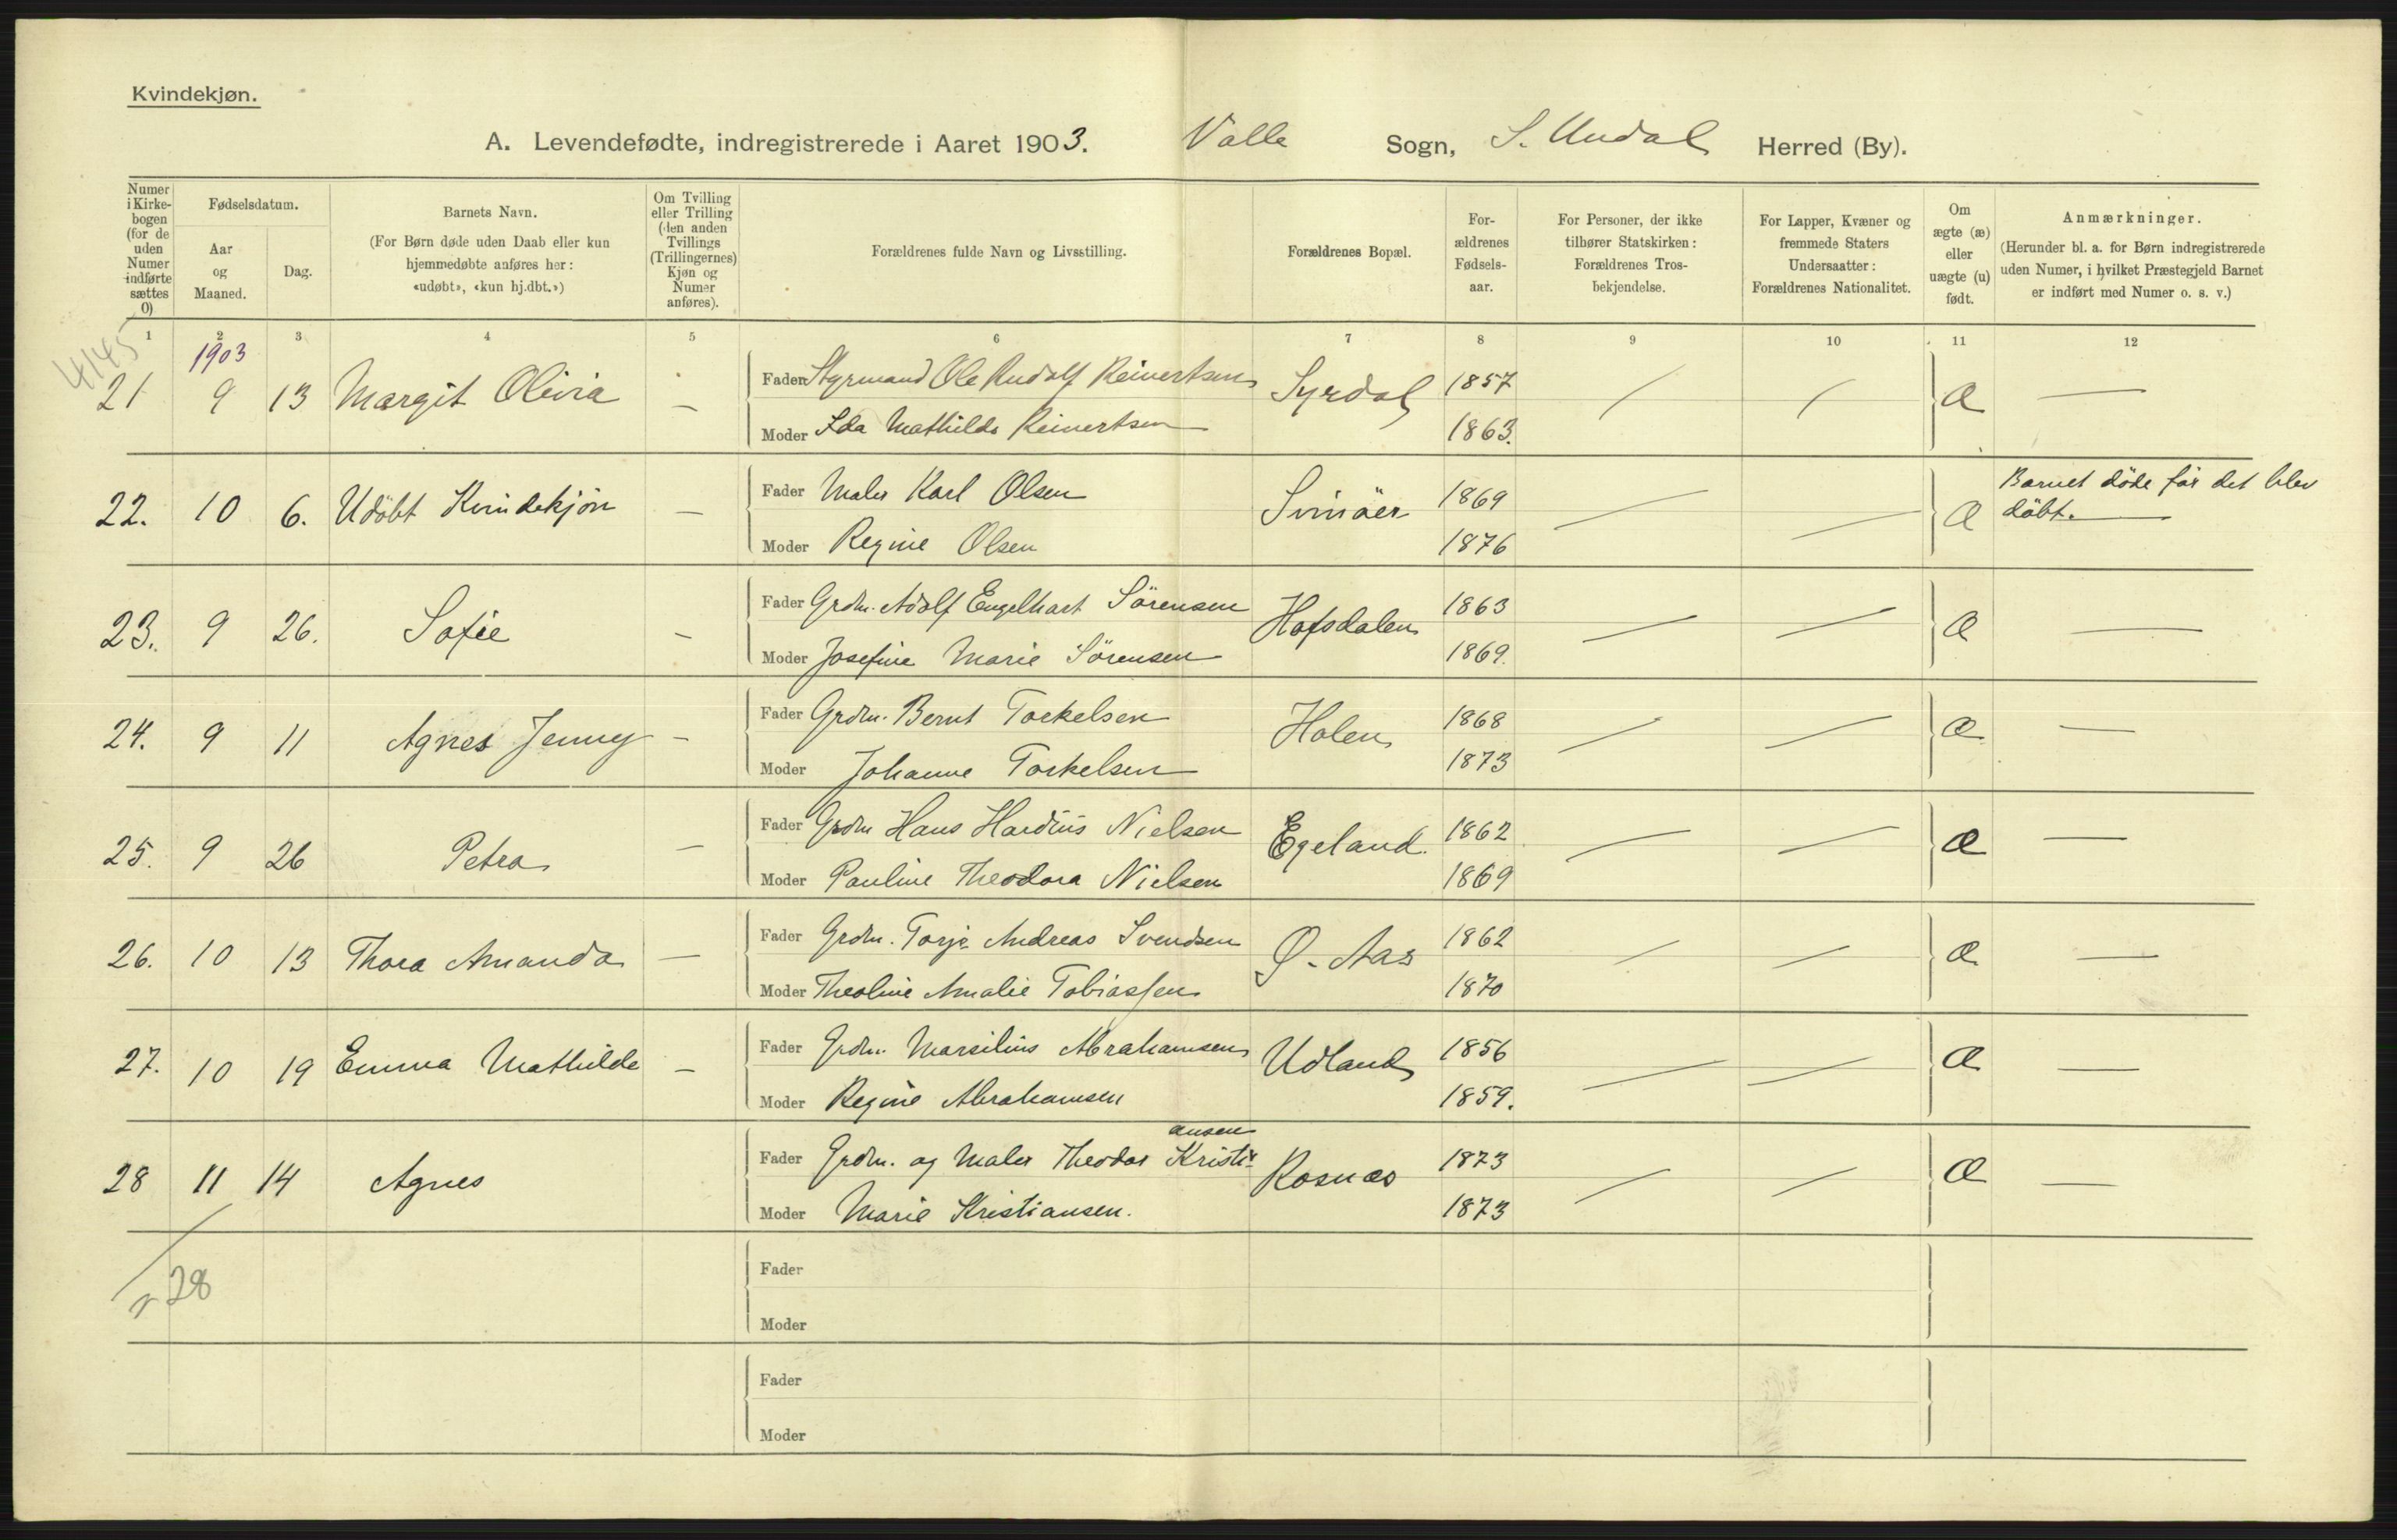 Kvindekjøn.
A. Levendefødte, indregistrerede i Aaret 1903. Valle Sogn, S. Undal Herred (By).
Numer i Kirkebogen (for de uden Numer indførte sættes 0)
Fødselsdatum.
Aar og Maaned.
Dag.
Barnets Navn.
(For Børn døde uden Daab eller kun hjemmedøbte anføres her: «udøbt», «kun hj.dbt.»)
Om Tvilling eller Trilling (den anden Tvillings (Trillingernes) Kjøn og Numer anføres).
Forældrenes fulde Navn og Livsstilling.
Forældrenes Bopæl.
Forældrenes Fødselsaar.
For Personer, der ikke tilhører Statskirken: Forældrenes Trosbekjendelse.
For Lapper, Kvæner og fremmede Staters Undersaatter: Forældrenes Nationalitet.
Om ægte (æ) eller uægte (u) født.
Anmærkninger.
(Herunder bl. a. for Børn indregistrerede uden Numer, i hvilket Præstegjeld Barnet er indført med Numer o. s. v.)
1 2 3 4 5 6 7 8 9 10 11 12
4145
1903
21 9 13 Margit Olivia — Fader Styrmand Ole Rudolf Reinertsen Syrdal 1857 / / Æ —
Moder Ida Mathilde Reinertsen 1863.
22. 10 6. Udöbt Kvindekjön — Fader Maler Karl Olsen Svinöer 1869 — — Æ Barnet döde för det blev
döbt. —
Moder Regine Olsen 1876
23. 9 26. Sofie — Fader Grdm. Adolf Engelhart Sörensen Hafsdalen 1863 — — Æ —
Moder Josefine Marie Sörensen 1869.
24. 9 11 Agnes Jenny — Fader Grdm. Bernt Torkelsen Holen 1868 — — Æ —
Moder Johanne Torkelsen 1873
25. 9 26 Petra — Fader Grdm Hans Hardius Nielsen Egeland. 1862 — — Æ —
Moder Pauline Theodora Nielsen 1869
26. 10 13 Thora Amanda — Fader Grdm. Torje Andreas Svendsen Ø. Aas 1862 — — Æ —
Moder Theoline Amalie Tobiassen 1870
27. 10 19 Emma Mathilde — Fader Grdm. Marsilius Abrahamsen Udland 1856 — — Æ —
Moder Regine Abrahamsen 1859.
28 11 14 Agnes Fader Grdm. og Maler Theodor Kristiansen Rosnæs 1873 — — Æ —
Moder Marie Kristiansen. 1873
28
Fader
Moder
Fader
Moder